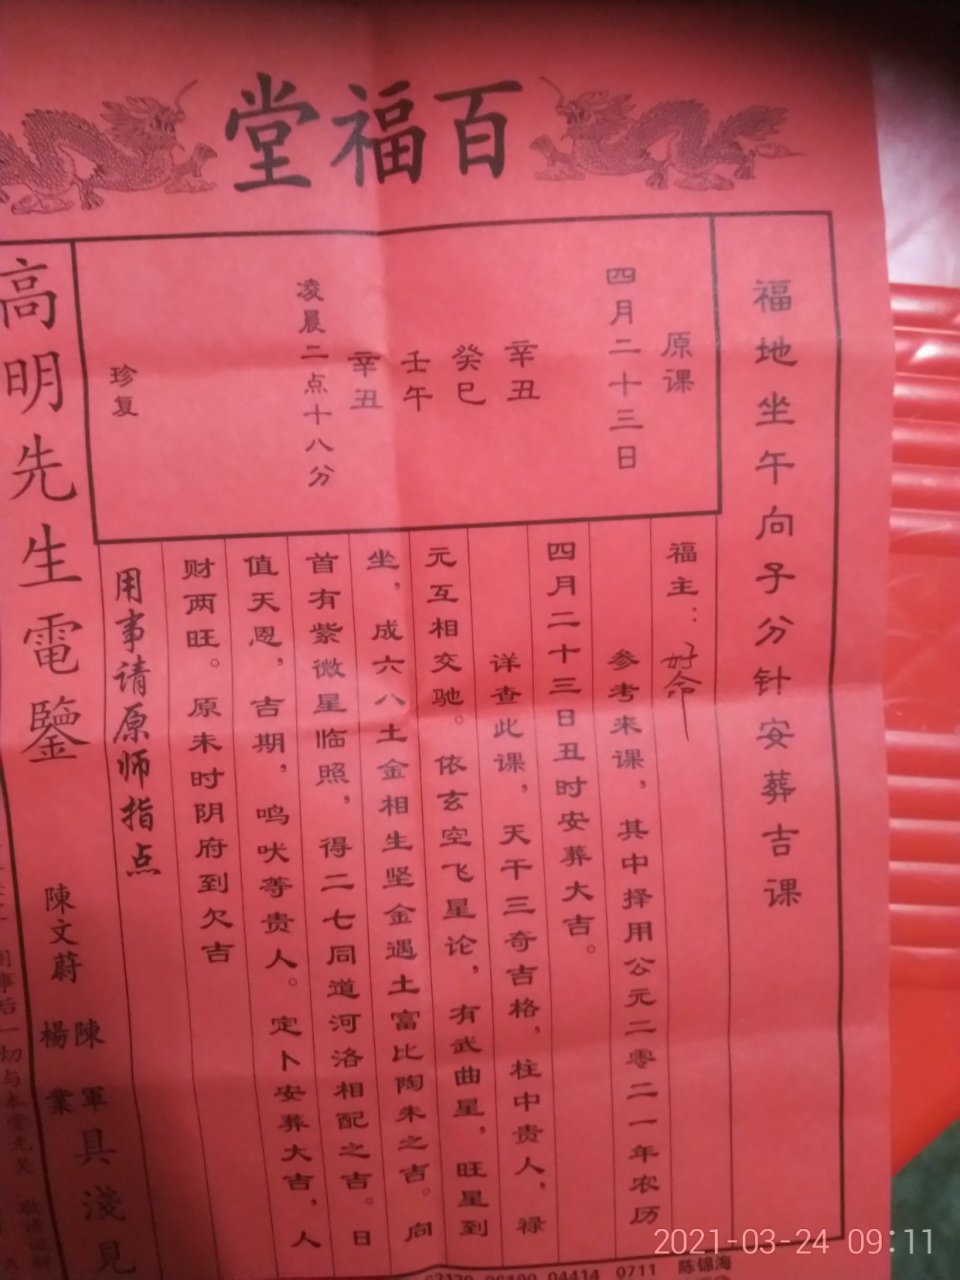 百福堂
福地坐午向子分针安葬吉课
原课
四月二十三日
辛丑
癸巳
壬午
辛丑
凌晨二点十八分
珍复
福主：好命
参考来课，其中择用公元二零二一年农历
四月二十三日丑时安葬大吉。
详查此课，天干三奇吉格，柱中贵人，禄
元互相交驰。依玄空飞星论，有武曲星，旺星到
坐，成六八土金相生坚金遇土富比陶朱之吉。向
首有紫微星临照，得二七同道河洛相配之吉。日
值天恩，吉期，鸣吠等贵人。定卜安葬大吉，人
财两旺。原未时阴府到欠吉
用事请原师指点
高明先生電鑒
陳文蔚
陳軍
楊業
具淺見
用事后一切与本堂无关
04414 0711 陈锦海
2021-03-24 09:11